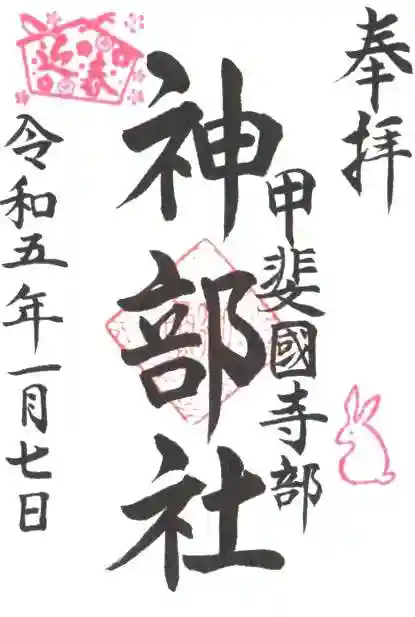 奉拝
甲斐國寺部
神部社
迎春
令和五年一月七日